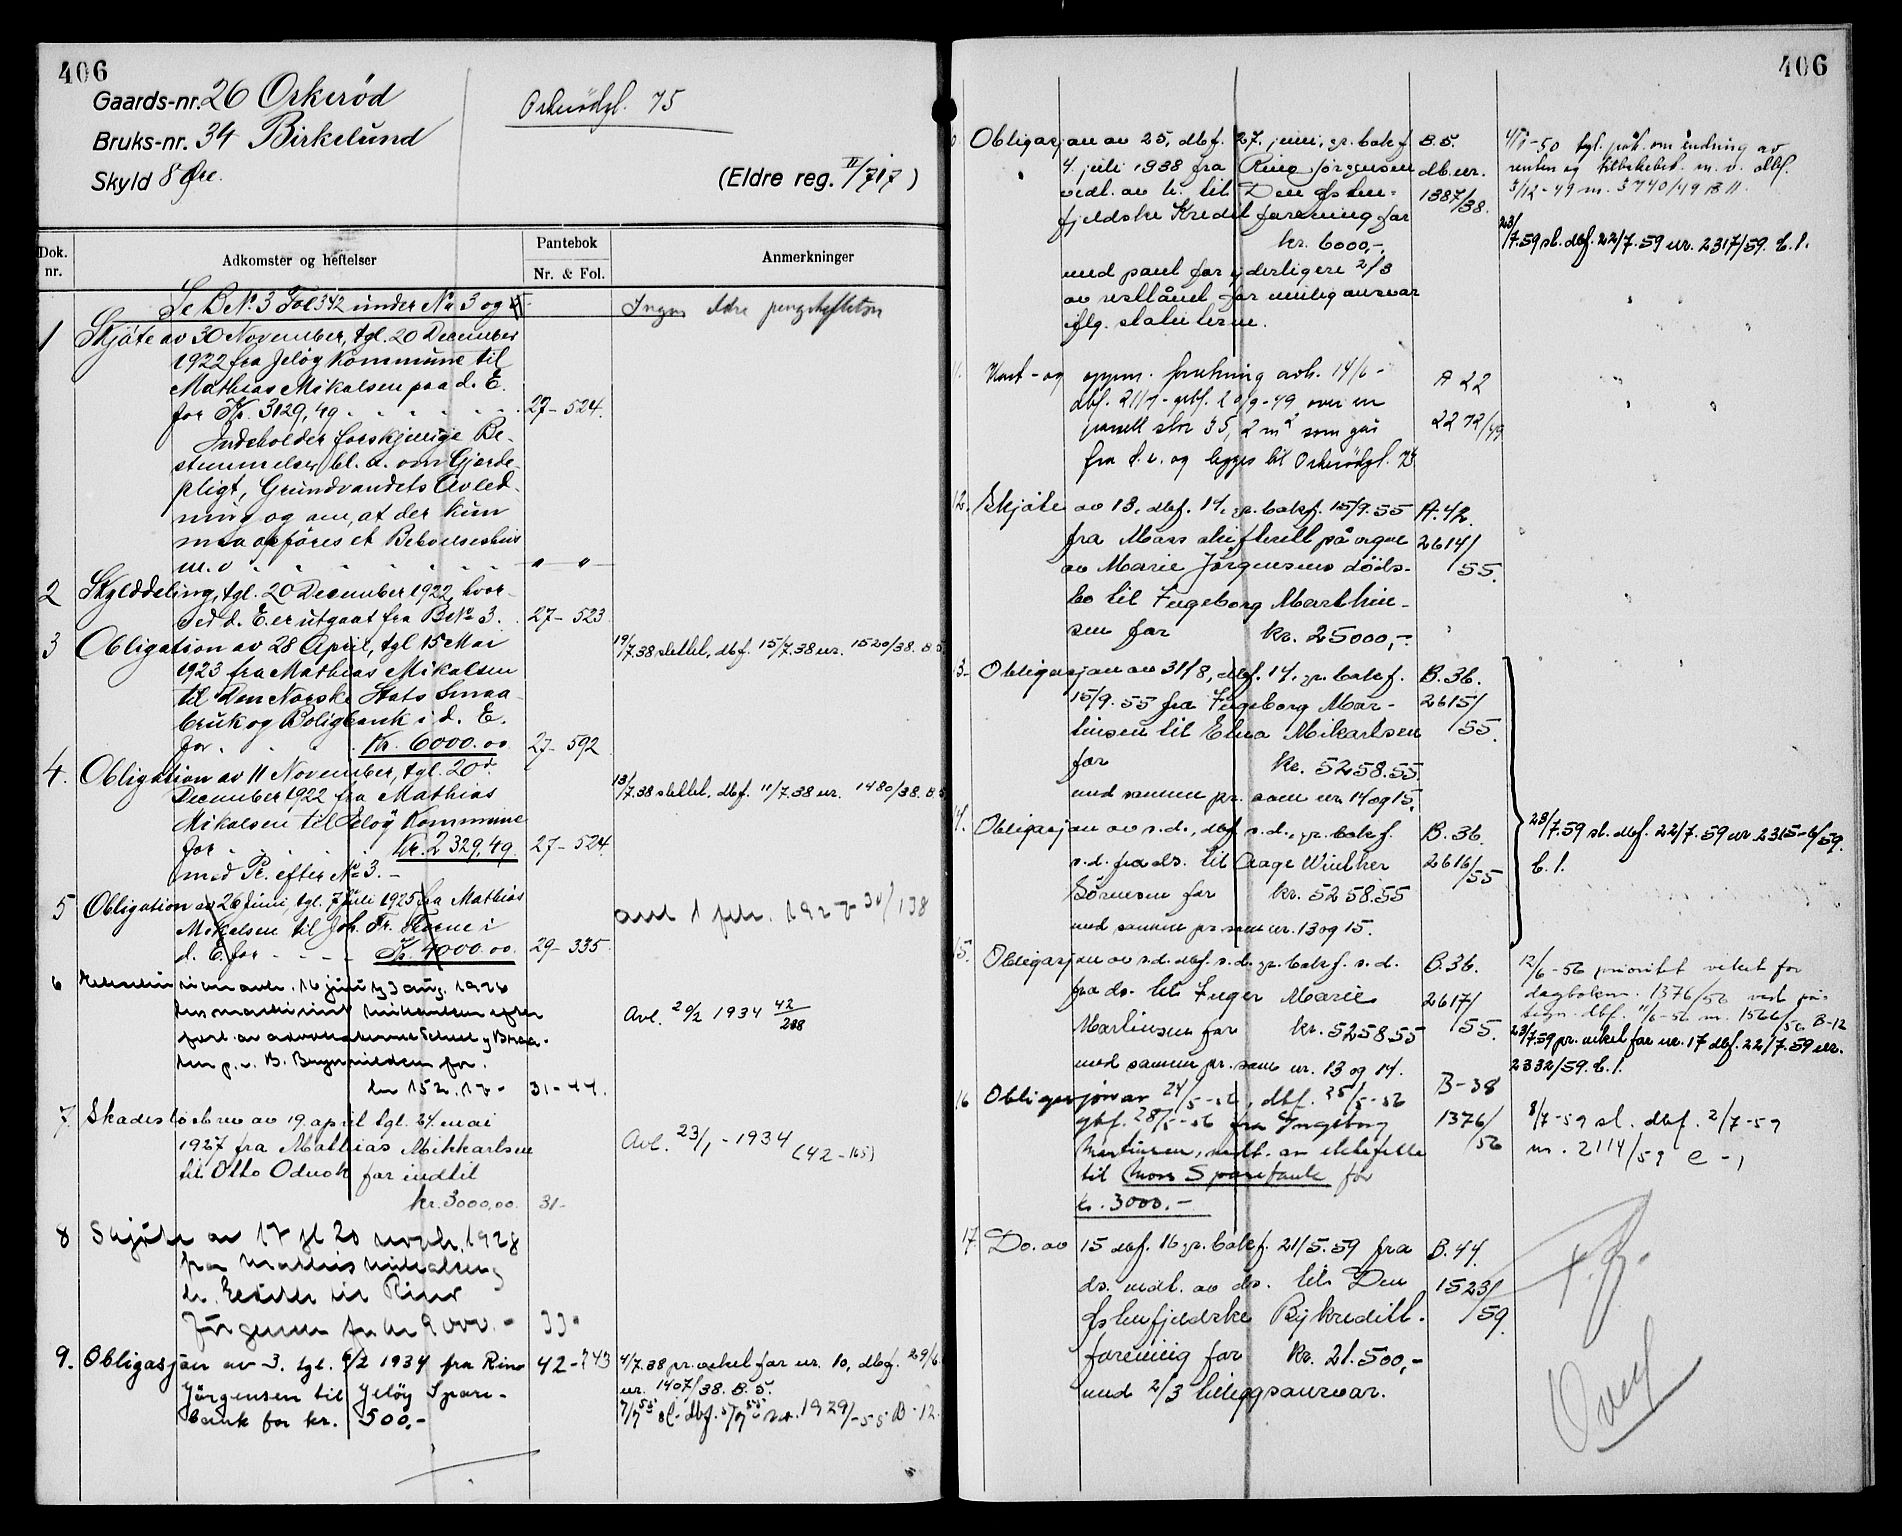 406
Gaards-nr. 26 Orkerød
Bruks-nr. 34 Birkelund
Skyld 8 Øre.
Orkerødgl. 75
(Eldre reg. II/717)
Dok. nr.
Adkomster og heftelser
Pantebok
Nr. & Fol.
Anmerkninger
Se B No. 3 Fol 342 under No 3 og 4
Ingen eldre pengeheftelser
1 Skjöte av 30 November, tgl. 20 December
1922 fra Jelöy Kommune til
Mathias Mikalsen paa d. E.
for Kr. 3129,49 27-524.
Indeholder forskjellige Be-
stemmelser bl. a. om Gjerde-
pligt, Grundvandets Avled-
ning og om, at der kun
maa opføres et Beboelseshus
m. v
2 Skylddeling, tgl. 20 December 1922, hvor-
ved d. E. er utgaat fra B No 3. 27-523
3 Obligation av 28 April, tgl 15 Mai
1923 fra Mathias Mikalsen
til den Norske Stats Smaa-
bruk og Boligbank i d. E.
for Kr. 6000.00 27-592
19/7.38 slettet, dbf. 15/7.38 nr. 1520/38. B 5
4. Obligation av 11 November, tgl. 20d.
December 1922 fra Mathias
Mikalsen til Jelöy Kommune
for Kr. 2329,49. 27-524
med Pr. efter No 3.-
13/7.38 slettet, dbf. 11/7.38 nr. 1480/38. B 5
5 Obligation av 26 Juni, tgl. 7 Juli 1925 fra Mathias
Mikalsen til Joh. Fr. Thorne i
d. E. for Kr. 4000.00. 29-335
avl 1 febr. 1927 30/138
6 16 juni 3 aug. 1926
av advokaterne
p. v. B. Brynildsen for
31-44.
Avl. 20/2 1934 42/288
7. Skadeslösbrev av 19. april tgl. 24. mai
1927 fra Mathias Mikkarlsen
til Otto Oduck for indtil
kr. 3000,00. 31-
Avl. 23/1-1934 (42-165)
8 Skjöte av 17 tgl 20 1928
fra Mathias Mikalsen
til Rino
Jörgensen for kr 9000.- 33
9. Obligasjon av 3. tgl. 6/2 1934 fra Rino
Jörgensen til Jelöy Spare-
bank for kr. 500,- 42-243
4/7.38 pr. veket for nr. 10, dbf. 29/6.
nr. 1407/38. B. 5.
7/7 55 sl. dbf. 5/7 55 nr. 1929/-55 B-12.
406
Obligasjon av 25, dbf. 27. juni, gr. bokf.
4. juli 1938 fra Rino Jörgensen
vedt. av h. til Den Østen-
fjeldske Kreditforening for
kr. 6000,-,
med pant for yderligere 2/3
av restlånet for mulig ansvar
iflg. statutterne.
B. 5.
db.nr.
1387/38.
-50 tgl. påt. om endring av
renten og tilbakebet. m. v. dbf.
3/12-49 nr. 3740/49 B 11.
23/7.59 sl. dbf. 22/7.59 nr. 2317/59. C. 1.
11. Kart- og oppm. forretning avh. 14/6-
dbf. 21/7- gebf. 20/9-49 over en
parsell stor 35,2 m2 som går
fra d. e. og legges til Orkerödgl.
A 22
2272/49
12. Skjöte av 13, dbf. 14, gr. bokf. 15/9.55
fra Moss skifterett på vegne
av Marie Jörgensens döds-
bo til Ingeborg Marthin-
sen for kr. 25000,-
A. 42.
2614/55.
13. Obligasjon av 31/8, dbf. 14. gr. bokf.
15/9.55 fra Ingeborg Mar-
tinsen til Elna Mikarlsen
for kr. 5258.55.
med samme pr. som nr. 14 og 15.
B. 36.
2615/55.
14. Obligasjon av s.d., dbf. s.d., gr. bokf.
s.d. fra ds. til Aage Winther
Sörensen for kr. 5258.55
med samme pr. som nr. 13 og 15.
B. 36.
2616/55
23/7.59 sl. dbf. 22/7.59 nr 2315-6/59.
C. 1.
15. Obligasjon av s.d. dbf. s.d. gr. bokf. s.d.
fra ds. til Inger Marie
Martinsen for kr. 5258.55
med samme pr. som nr. 13 og 14.
B. 36.
2617/55.
12/6-56 prioritet veket for
dagboknr. 1376/56 ved på-
tegn. dbf. 11/6-56 nr. 1566/56 B-12
23/7.59 pr. veket for nr. 17 dbf. 22/7.59 nr.
2332/59. C. 1.
16 Obligasjon av 24/5-56, dbf. 25/5-56
gbf. 28/5-56 fra Ingeborg
Martinsen, vedt. av ektefelle
til Moss Sparebank for
kr. 3000.-
B-38
1376/56
8/7-59 sl. dbf. 2/7-59
nr. 2114/59 C-1
17 Do. av 15 dbf. 16 gr. bokf. 21/5.59 fra
ds. vedt. av ds. til Den
Østenfjeldske Bykreditt-
forening for kr. 21.500,-
med 2/3 tilleggsansvar.
B. 44.
1523/59.
Overf